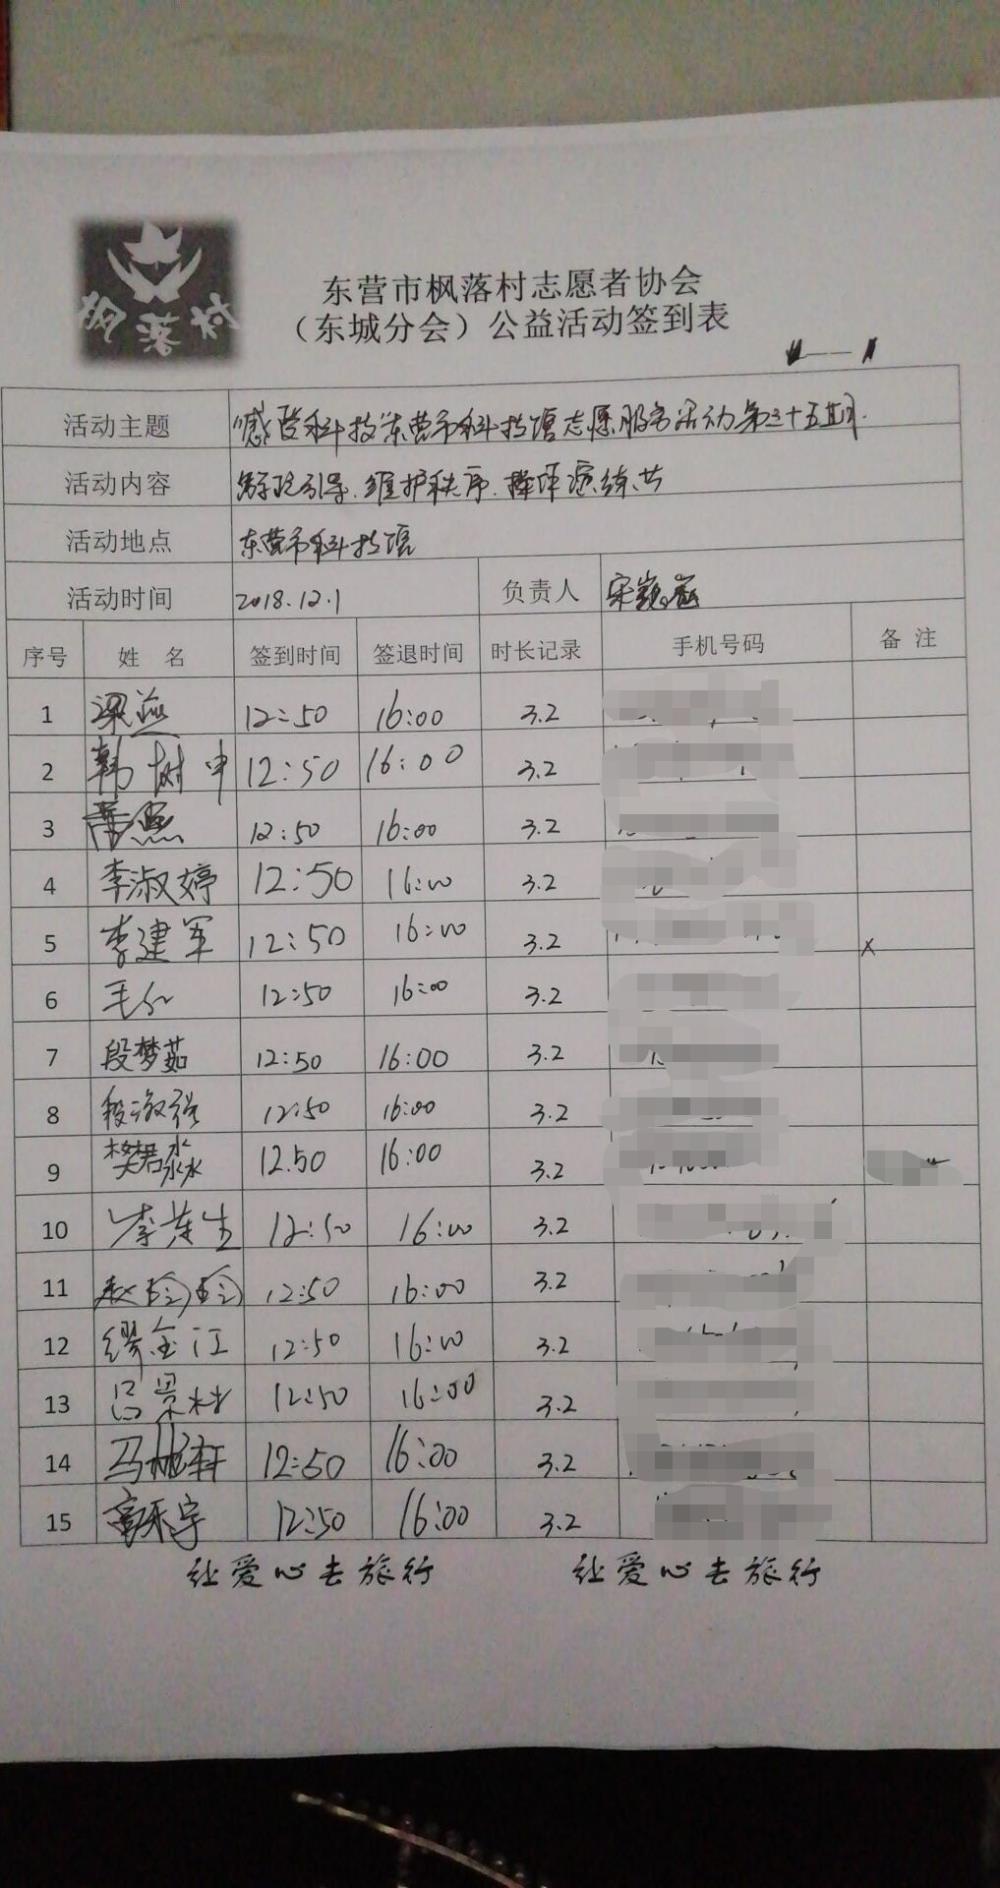 枫落村
东营市枫落村志愿者协会
（东城分会）公益活动签到表
活动主题 感受科技东营市科技馆志愿服务活动第三十五期.
活动内容 引导.维护秩序.
活动地点 东营市科技馆
活动时间 2018.12.1 负责人 宋
序号 姓 名 签到时间 签退时间 时长记录 手机号码 备 注
1 梁 12:50 16:00 3.2
2 韩树申 12:50 16:00 3.2
3 12:50 16:00 3.2
4 李淑婷 12:50 16:00 3.2
5 李建军 12:50 16:00 3.2 x
6 毛 12:50 16:00 3.2
7 段梦茹 12:50 16:00 3.2
8 段 12:50 16:00 3.2
9 樊君淼 12.50 16:00 3.2
10 李 生 12:50 16:00 3.2
11 赵 12:50 16:00 3.2
12 缪金江 12:50 16:00 3.2
13 吕景材 12:50 16:00 3.2
14 马 轩 12:50 16:00 3.2
15 高 宇 12:50 16:00 3.2
让爱心去旅行 让爱心去旅行